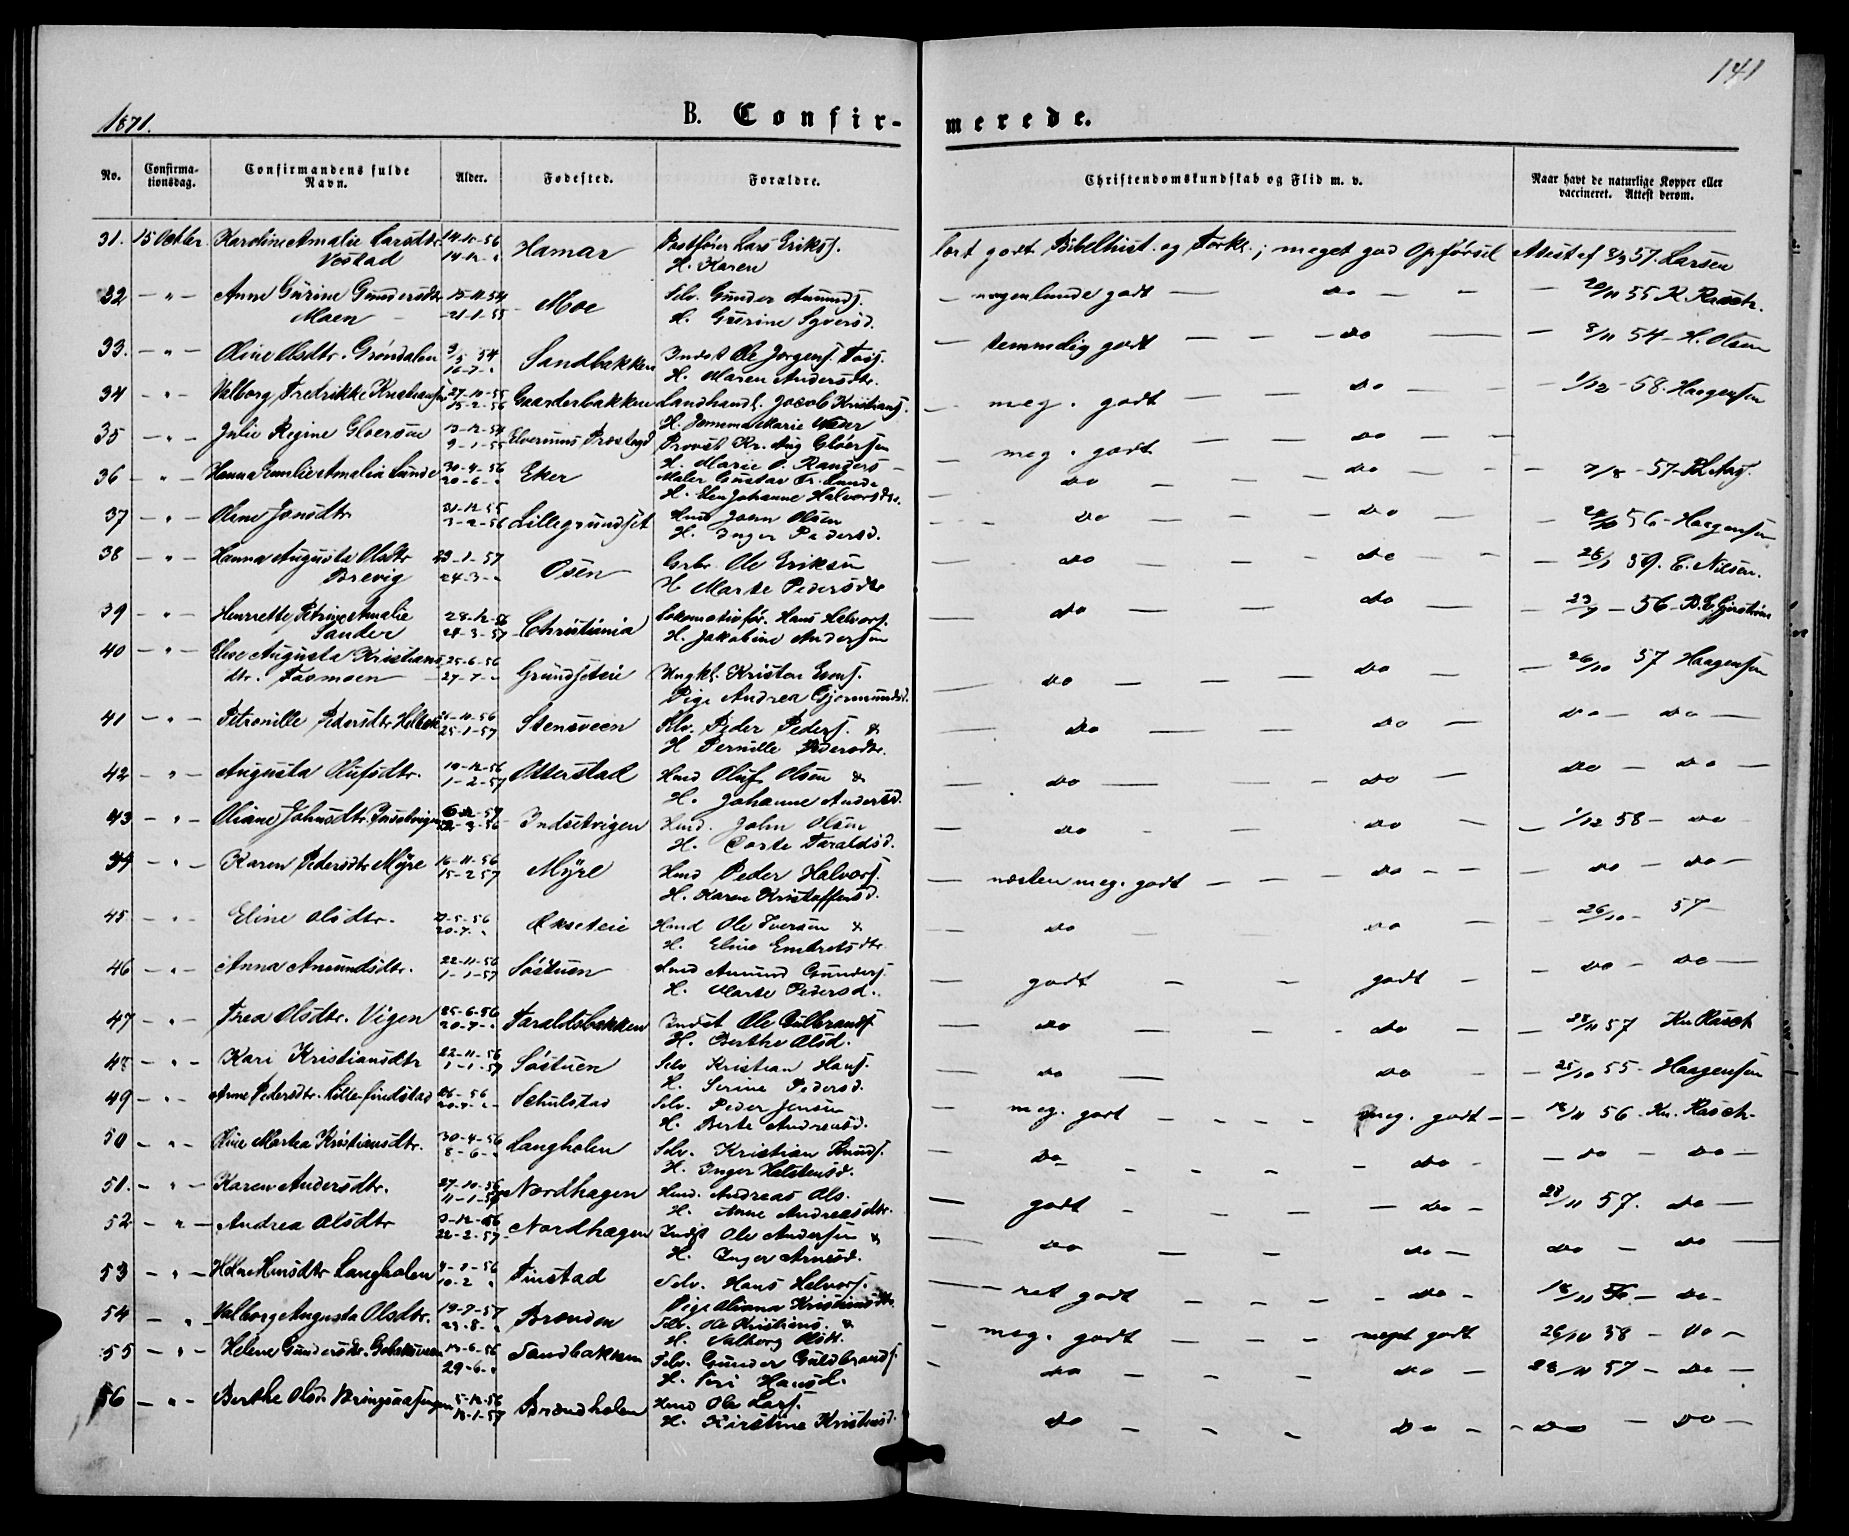 141
1871.
B. Confirmerede.
No. Confirmationsdag. Confirmandens fulde Navn. Alder. Fødested. Forældre. Christendomskundskab og Flid m. v. Naar havt de naturlige Kopper eller vaccineret. Attest derom.
31. 15 Octbr. Karoline Amalie Larsdtr. 14-10-56 Hamar Postfører Lars Eriks. godt Bibelhist. og Fork.; meget god Opførsel Attest af 8/9 57. Larsen
Vostad 14-12-" H. Karen
32 - " - Anne Gurine Gundersdtr. 15-11-54 Moe Selv. Gunder Amunds. nogenlunde godt do 20/11 55 K. Rasch.
Moen 21-1-55 H. Gurine Syversd.
33. - " - Oline Olsdtr. Grøndalen 9/5 54 Sandbakken Indst Ole Jørgens. temmelig godt do 8/11 54 - H. Olsen
16-7-" H. Maren Andersdtr.
34 - " - Valborg Fredrikke Kristiansen 27-10-55 Gaarderbakken Landhandl. Jacob Kristians. meg. godt do 1/12 - 58. Haagensen
15-2-56 H. Marie
35 - " - Julie Regine Gløersen 13-12-54 Elverums Præstegd Provst Kr. Aug Gløersen meg. godt do
9-1-55 H. Marie O. Randers
36 - " - Hanna Emilie Amalia Lunde 30-4-56 Eker Maler Gustav Fr. Lunde do do 7/8 - 57
20-6-" H. Elen Johanne Halvorsdtr.
37 - " - Oline Jonsdtr 31-12-55 Lillegrundset Hmd John Olsen do do 56 - Haagensen
3-2-56 H. Inger Pedersd.
38 - " - Hanna Augusta Olsdtr 23-1-57 Osen Grbr. Ole Eriksen do do 59. E. Nilsen.
Brevig 24-3-" H Marte Pedersdtr
39 - " - Henriette Petrine Amalie 28-12-56 Christiania Lokomotivfør. Hans Halvors. do do 23/9 - 56
Sander 24-3-57 H. Jakobine Andersen
40 - " - Elise Augusta Kristians 25-6-56 Grundseteie Ungkl. Kristen Evens. do do 26/10 57 Haagensen
dtr. Fosmoen 27-7-" Pige Andrea Gjermundsd.
41 - " - Petronille Pedersdtr 25-1-57 Stensveen Selv. Peder Peders. & do do do - do
H Pernille Pedersdtr.
42 - " - Augusta Olufsdtr. 19-12-56 Otterstad Hmd Oluf Olsen & do do do - do
1-2-57 H. Johanne Andersd.
43 - " - Oliane Johnsdtr. Indsetvigen Hmd. John Olsen do do 1/12 58 - do
H. Dorte Taraldsd.
44 - " - Karen Pedersdtr Myre 16-11-56 Myre Hmd Peder Halvors. næsten meg. godt do do - do
15-2 57 H. Karen Kristoffersd.
45 - " - Eline Olsdtr. 5-56 Økseteie Hmd Ole Iversen & do do 26/10 - 57
20-7-" H. Eline Embretsdtr.
46 - " - Anna Amundsdtr. 22-11-56 Søstuen Hmd Amund Gunders. godt godt do - do
1-1-57 H. Marte Pedersd.
47 - " - Thea Olsdtr. Vigen 25-6-56 Taraldsbakken Indst Ole Gulbrands. do do 23/11 57 Kn Rasch
20-7-" H. Berthe Olsd.
48 - " - Kari Kristiansdtr 22-11-56 Søstuen Selv Kristian Hans. do do 25/10 55 - Haagensen
1-1-57 H. Serine Pedersd.
49 - " - Anne Pedersdtr. Lille-findstad 56 Schulstad Selv. Peder Jensen meg. godt meg. godt 18/11 56 - Kn. Rasch.
20-7-" H. Berte Andreasd.
50 - " - Oline Martea Kristiansdtr. 30-4-56 Langholen Selv. Kristian Knuds. do do do - do
8-6-" H. Inger Halstensd.
51. - " - Karen Andersdtr. 27-10-56 Nordhagen Hmd. Andreas Ols. godt do 23/11 57. do
11-1-57 H. Anne Andreasdtr.
52 - " - Andrea Olsdtr 3-12-56 Nordhagen Indst Ole Andersen & do do do - do
22-2-57 H. Inger Arnesd.
53 - " - Helene Hansdtr Langholen 56 Finstad Selv. Hans Halvors. ret godt do 18/11 56 - do
10-2 " Pige Oliana Kristiansdtr
54 - " - Valborg Augusta Olsdtr. 19-7-57 Brænden Selv. Ole Kristians. & meg. godt meget godt 26/10 58 - do
23-8-" H. Valborg Olsd.
55 - " - Helene Gundersdtr. 13-6-56 Sandbakken Selv. Gunder Guldbrands. do do 23/11 57 - do
29-6-" H. Siri Hansd.
56 - " - Berthe Olsd. 5-12-56 Brændholen Hmd Ole Lars. do do do - do
1-57 H. Kirstine Kristiansd.